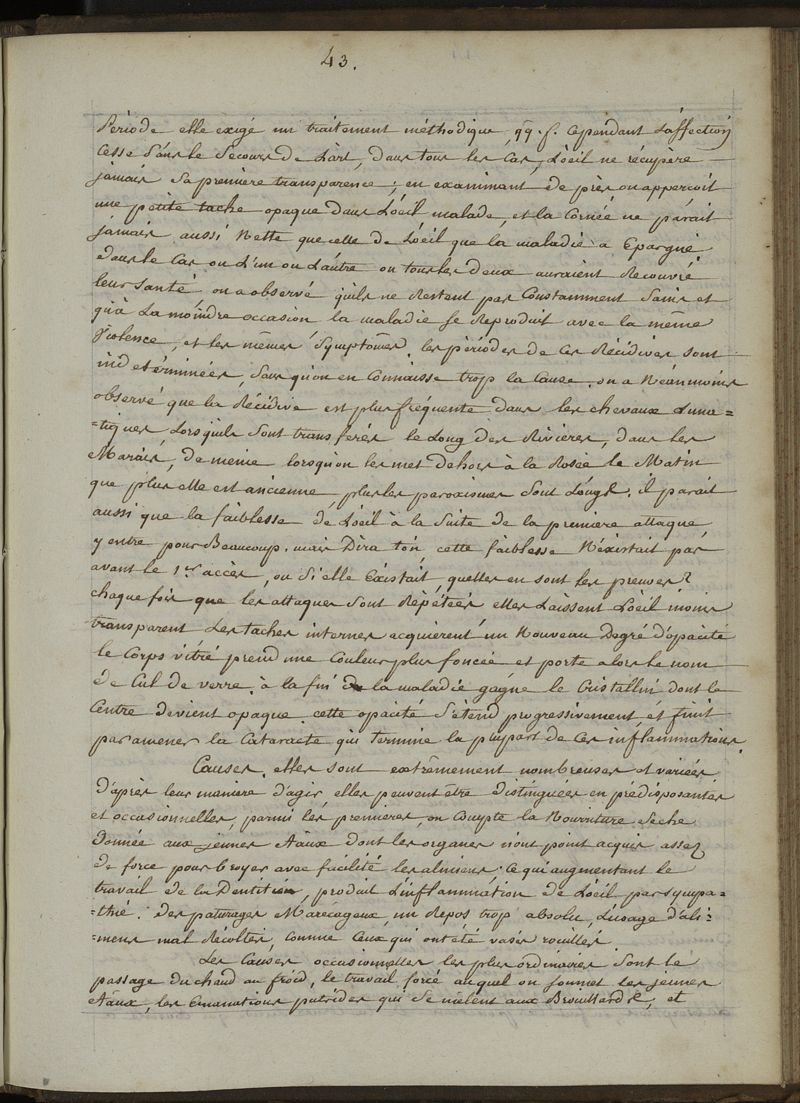 43.
Periode elle exige un traitement méthodique, qq.f. Cependant L'affection
Cesse Sans le Secours de L'art, dans tous les Cas, L'œil ne récupere
jamais Sa premiere transparence; en examinant de près on apperçoit
une petite tache opaque dans L'œil malade, et la Cornée ne parait
jamais aussi Nette que celle de L'œil que la maladie a Epargné
dans le Cas ou L'un ou L'autre ou tous les deux auraient Recouvré
leur Santé on a observé qu'ils ne Restent pas Constamment Sains et
qu'à La moindre occasion la maladie Se Reproduit avec la même
Violence, et les mêmes Symptômes. les périodes de Ces Récidives sont
indéterminées, Sans qu'on en Connaisse trop la Cause. on a Néanmoins
observé que la Récidive est plus fréquente dans les chevaux Luna=
=tiques Lorsquils Sont transferés le Long des Rivieres, dans les
Marais, de meme lorsqu'on les met dehors à la Rosée le Matin
que plus elle est ancienne, plus les paroxismes Sont Longs. il parait
aussi que la faiblesse de L'œil à la Suite de la premiere attaque
y entre pour Beaucoup. mais Dira t'on, cette faiblesse N'éxistait pas
avant le 1er accès, ou Si elle Existait, quelles en sont les preuves?
chaque fois que les attaques Sont Répétées elles Laissent L'œil moins
transparent Les taches internes acquierent un Nouveau Degré d'opacité
le Corps vitré prend une Couleur plus foncée et porte alors le nom
de Cul de verre. à la fin la maladie gagne le Cristallin dont le
Centre devient opaque. cette opacité S'étend progressivement et finit
par amener la Cataracte qui termine la plupart de Ces inflammations.
Causes. elles sont extrêmement nombreuses et variées
D'après leur maniere d'agir elles peuvent être distinguées en prédisposantes
et occasionnelles, parmi les premieres, on Compte la Nourriture Seche
Donnée aux jeunes Aaux dont les organes n'ont point acquis assez
de force pour broyer avec facilité les alimens: Ce qui augmentant le
travail de la Dentition, produit L'inflammation de L'œil par Sympa=
=thie. Des paturages Marécageux, un Repos trop absolu, L'usage d'ali=
=mens mal Récoltés, Comme Ceux qui ont été vasés rouillés.
Les Causes occasionnelles les plus ordinaires Sont le
passage du chaud au froid, le travail forcé auquel on soumet les jeunes
Aaux, les Emanations putrides qui Se mêlent aux Brouillards, et